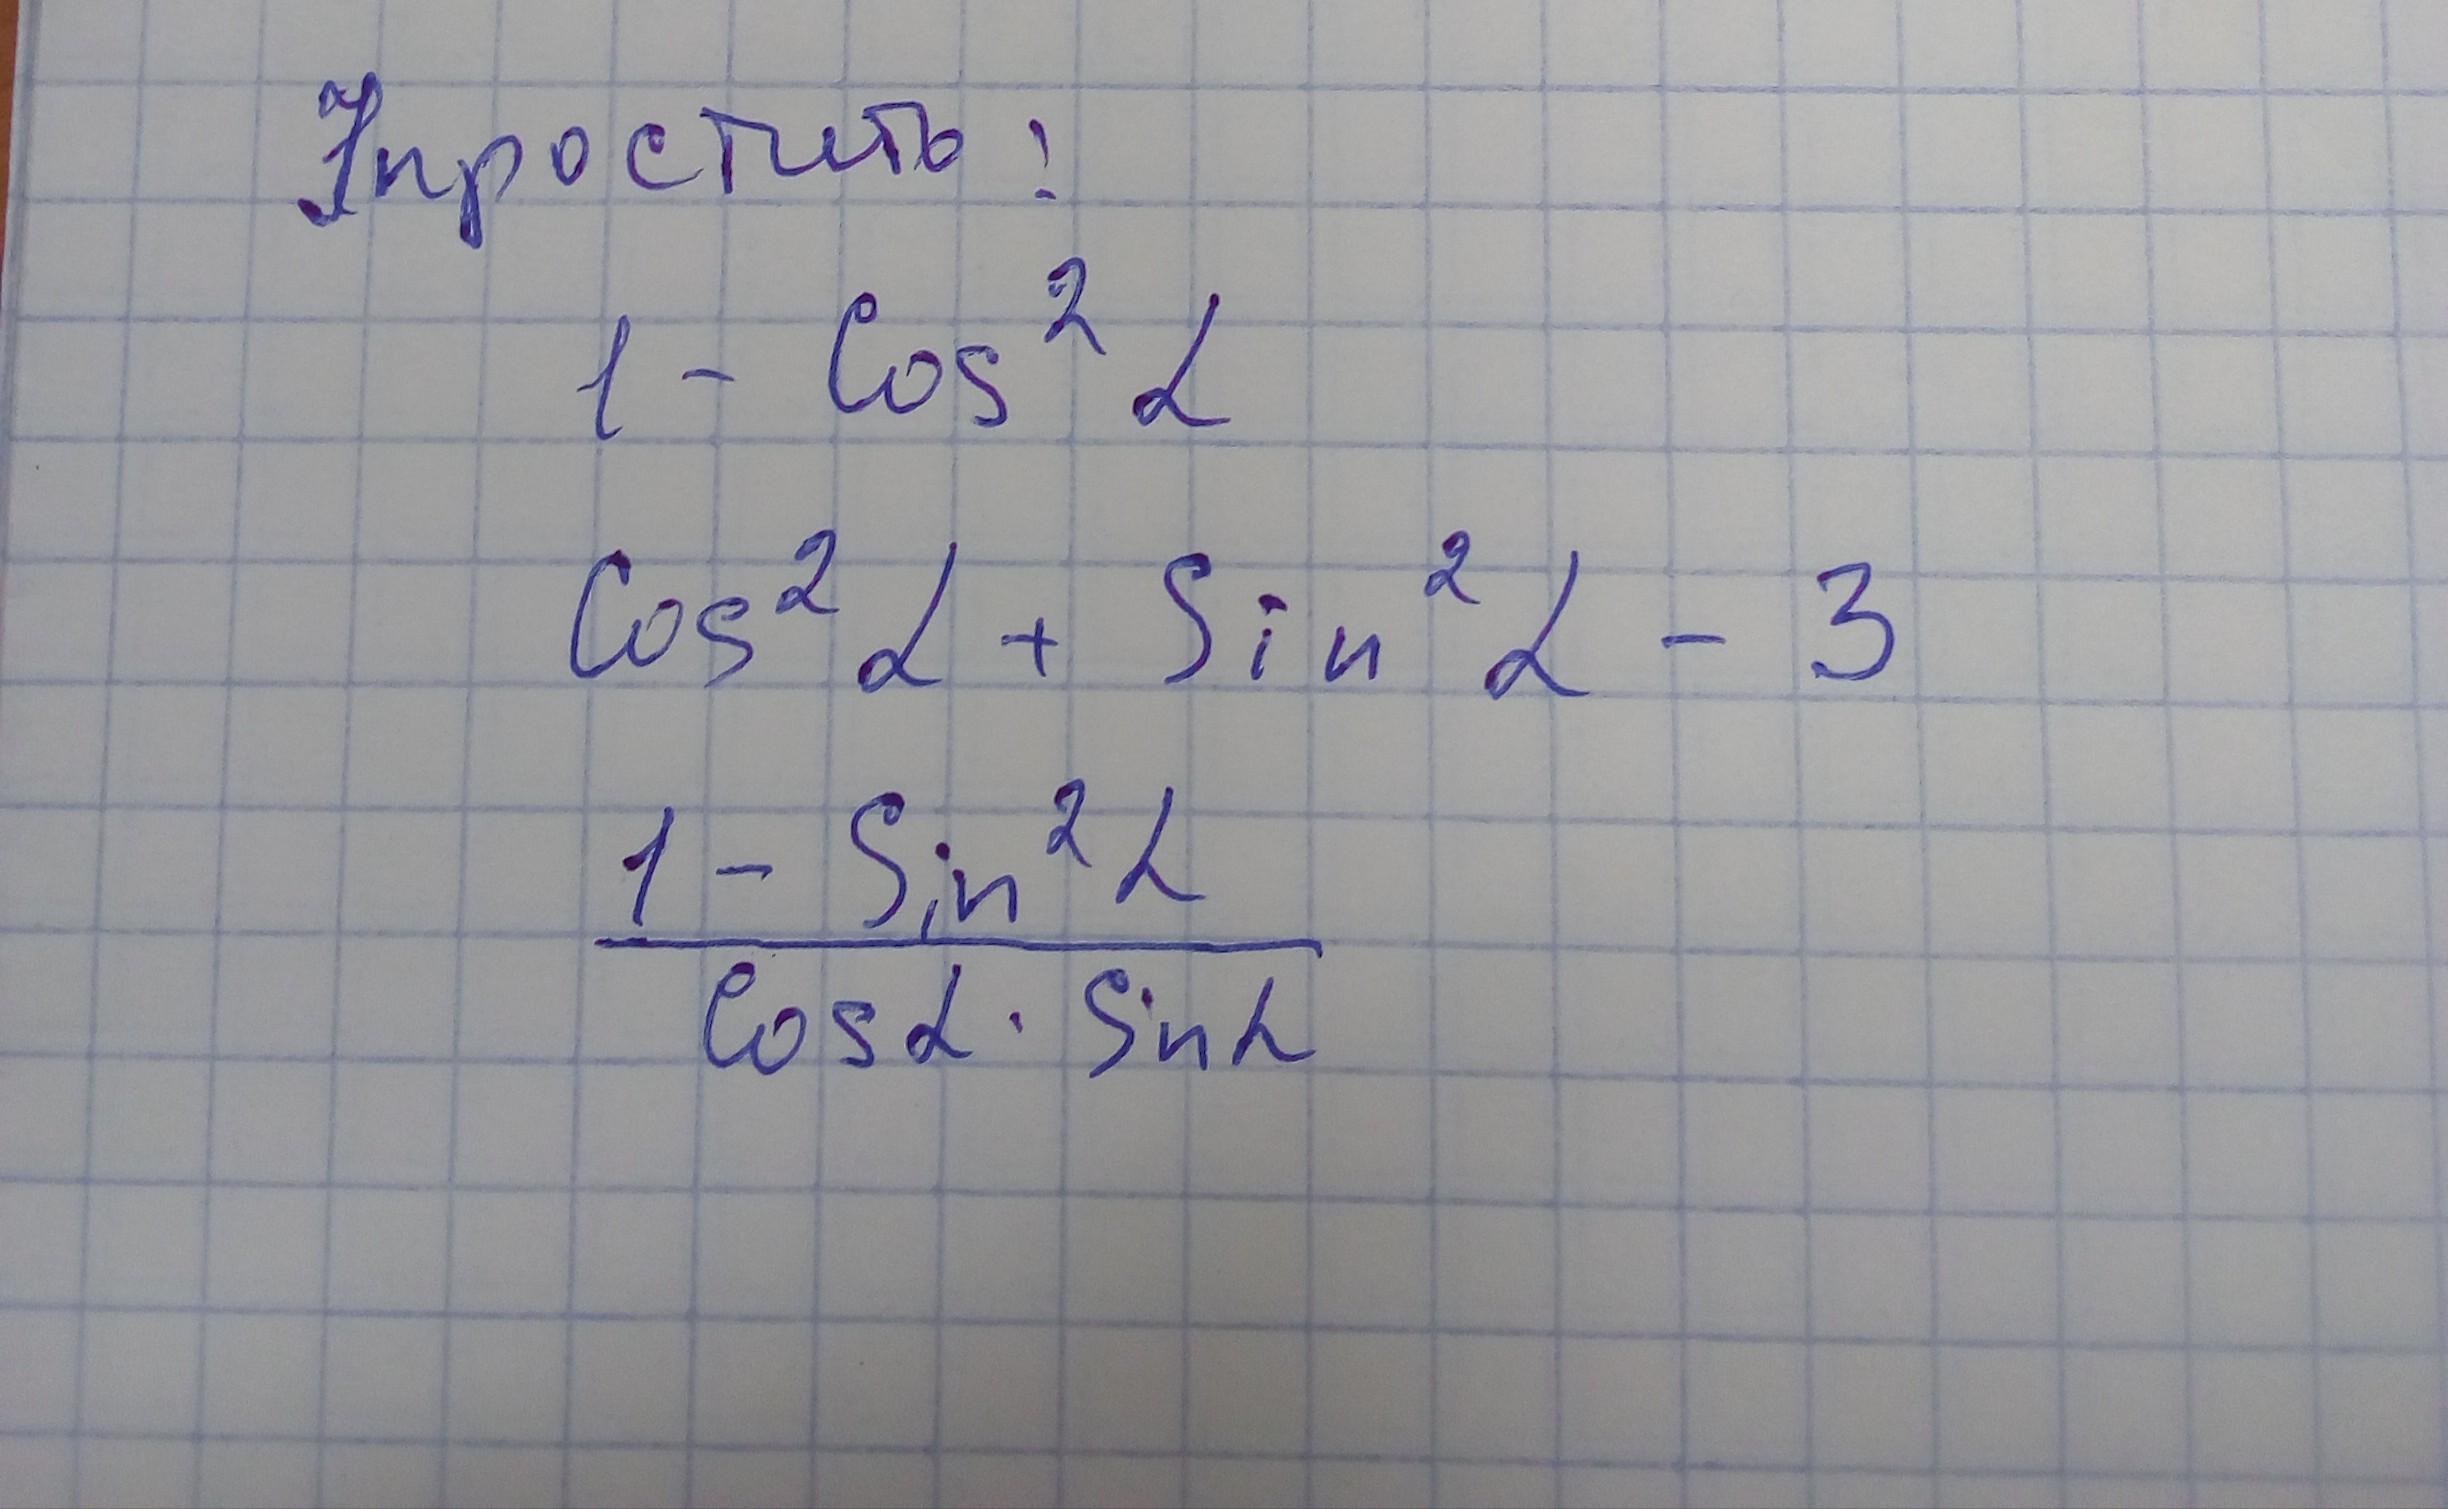 Упростить:
1 - Cos² α
Cos² α + Sin² α - 3
1 - Sin² α
Cos α · Sin α